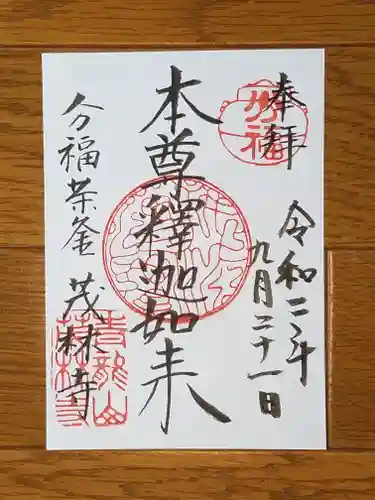 奉拝
分福
令和二年
九月二十一日
本尊釋迦如来
分福茶釜
茂林寺
青龍山
茂林寺